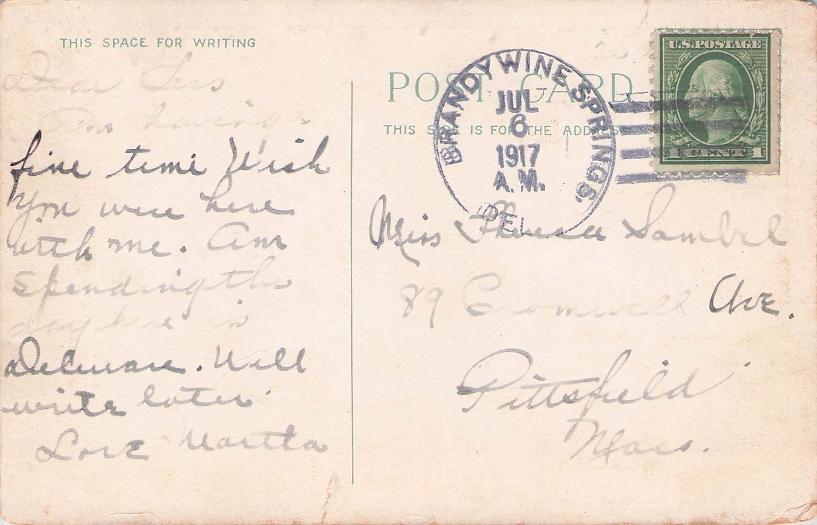 THIS SPACE FOR WRITING
Dear
Am having
fine time Wish
You were here
with me. Am
spending the
day here in
Delware. Will
write later
Love Martha
POST CARD
THIS SIDE IS FOR THE ADDRESS
BRANDYWINE SPRINGS,
JUL
6
1917
A.M.
DEL.
U.S. POSTAGE
1 CENT 1
Miss Theresa
89 Cromwell Ave.
Pittsfield
Mass.